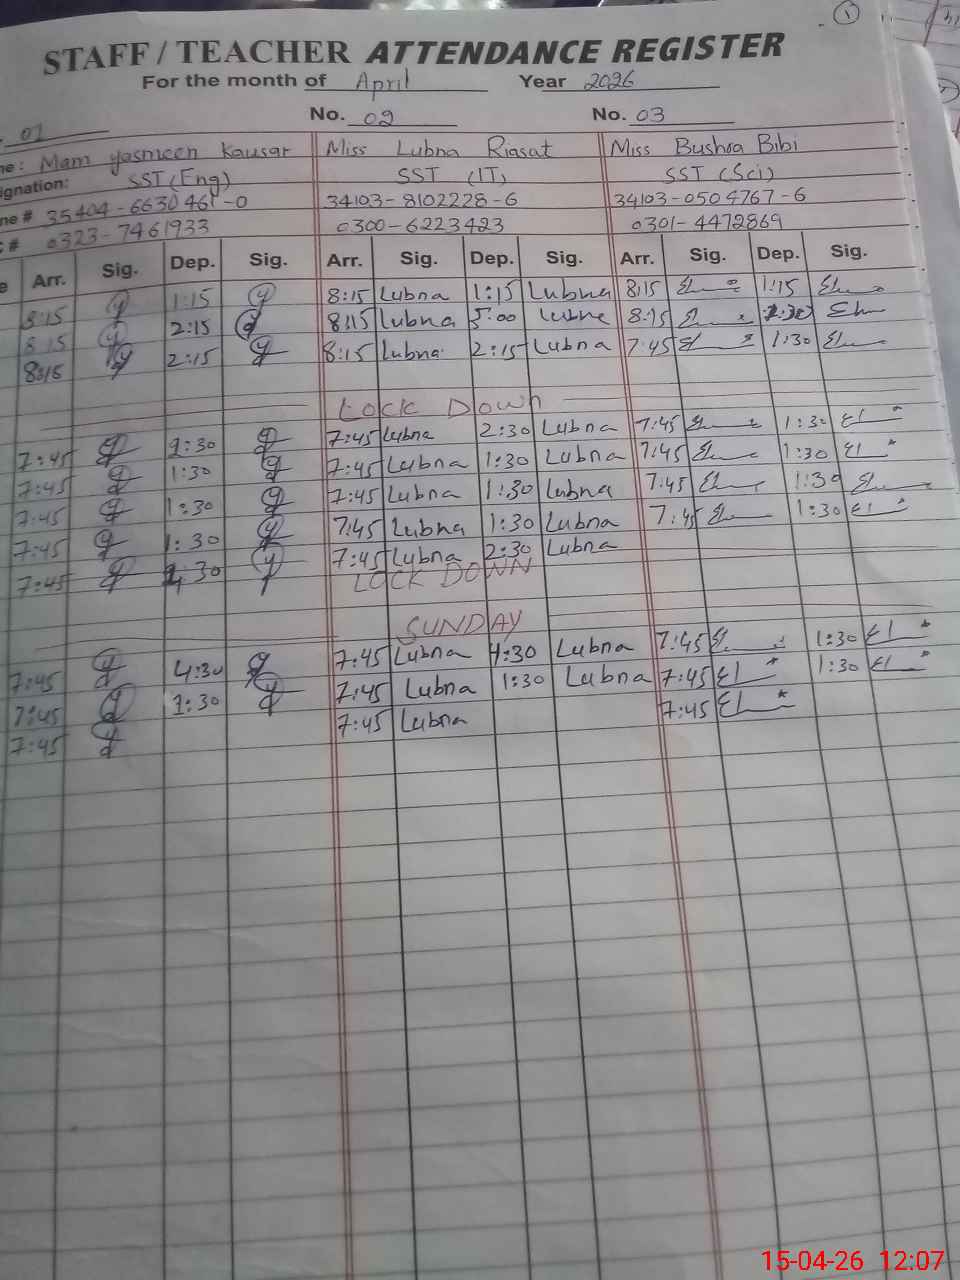 1
STAFF / TEACHER ATTENDANCE REGISTER
For the month of April Year 2026
01 No. 02 No. 03
me: Mam Yasmeen Kausar Miss Lubna Riasat Miss Bushra Bibi
signation: SST (Eng) SST (IT) SST (Sci)
ne # 35404-6630461-0 34103-8102228-6 34103-0504767-6
C # 0323-7461933 0300-6223423 0301-4472869
e Arr. Sig. Dep. Sig. Arr. Sig. Dep. Sig. Arr. Sig. Dep. Sig.
8:15 1:15 8:15 Lubna 1:15 Lubna 8:15 1:15
8:15 2:15 8:15 Lubna 5:00 Lubna 8:15
8:15 2:15 8:15 Lubna 2:15 Lubna 7:45 1:30
Lock Down
7:45 7:45 Lubna 2:30 Lubna 7:45 1:30
7:45 1:30 7:45 Lubna 1:30 Lubna 7:45 1:30
7:45 1:30 7:45 Lubna 1:30 Lubna 7:45 1:30
7:45 1:30 7:45 Lubna 1:30 Lubna 7:45 1:30
7:45 7:45 Lubna 2:30 Lubna
LOCK DOWN
SUNDAY
7:45 4:30 7:45 Lubna 4:30 Lubna 7:45 1:30
7:45 1:30 7:45 Lubna 1:30 Lubna 7:45 1:30
7:45 7:45 Lubna 7:45
15-04-26 12:07